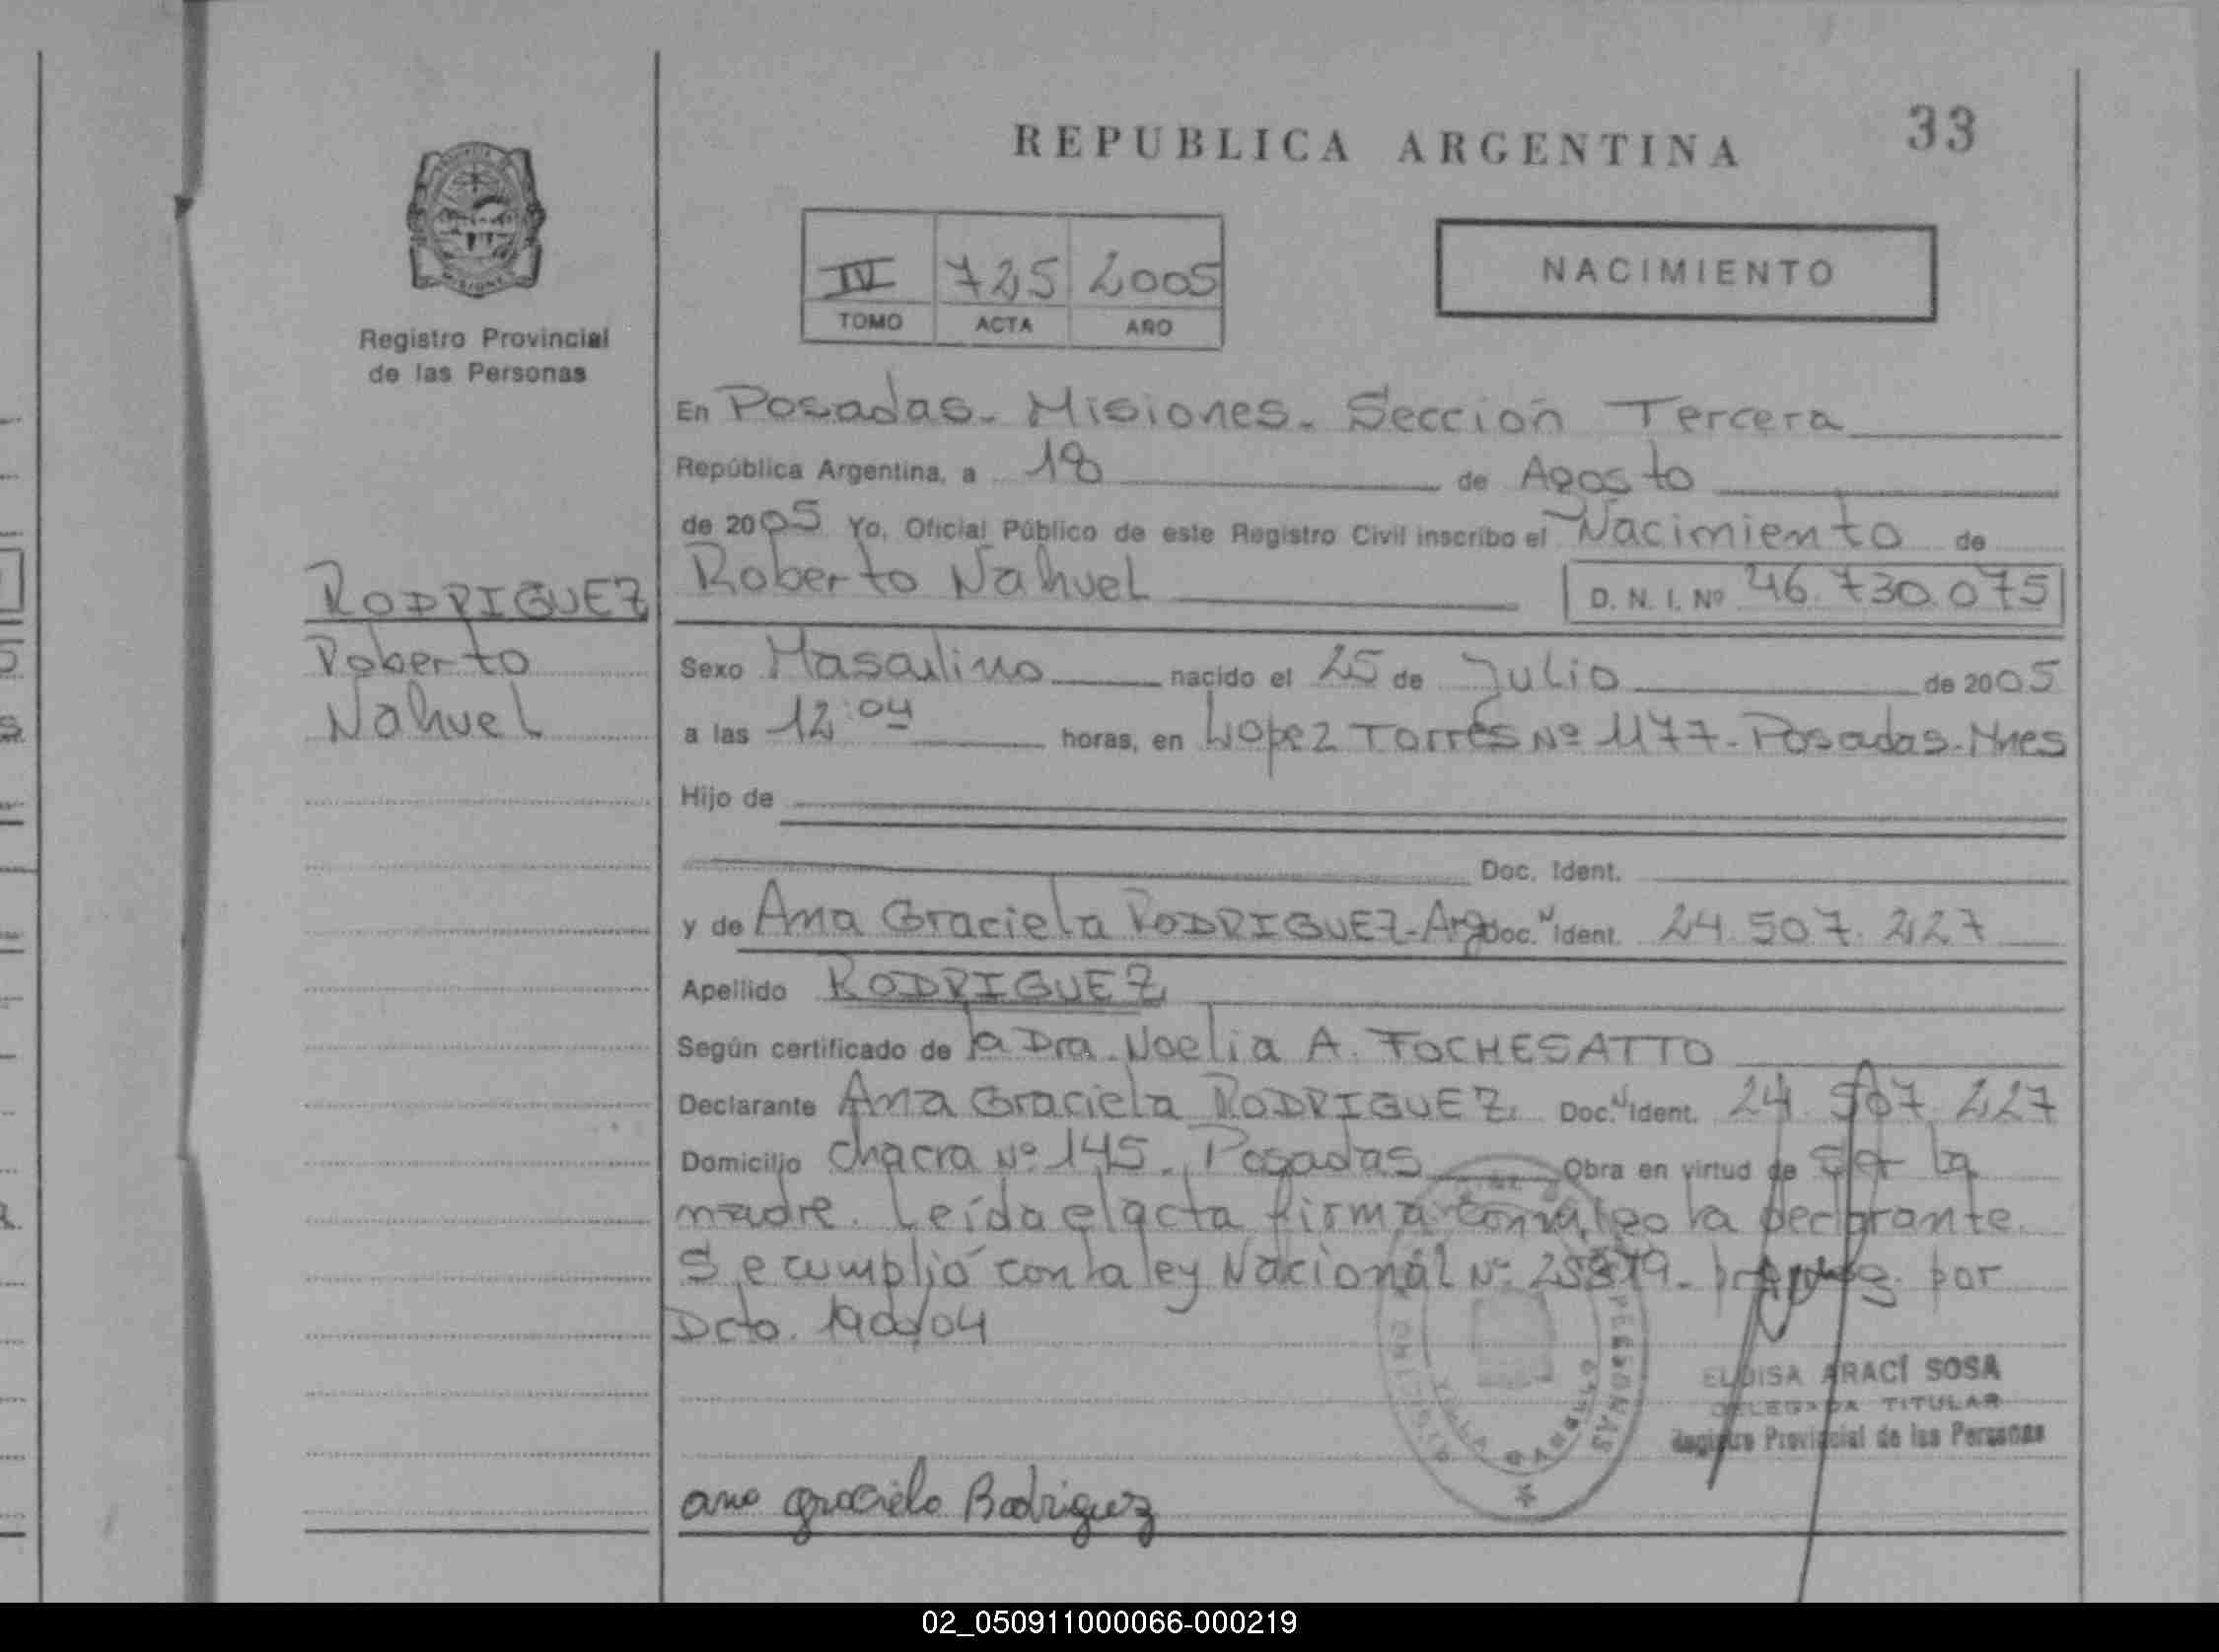 REPUBLICA ARGENTINA
33
IV 725 2005
TOMO ACTA AÑO
NACIMIENTO
Registro Provincial
de las Personas
RODRIGUEZ
Roberto
Nahuel
En Posadas - Misiones - Sección Tercera
República Argentina, a 18 de Agosto
de 2005 Yo, Oficial Público de este Registro Civil inscribo el Nacimiento de
Roberto Nahuel D. N. I. Nº 46.730.075
Sexo Masculino nacido el 25 de Julio de 2005
a las 12:04 horas, en Lopez Torres Nº 1177 - Posadas - Mnes
Hijo de
Doc. Ident.
y de Ana Graciela RODRIGUEZ - Arg Doc. N Ident. 24.507.227
Apellido RODRIGUEZ
Según certificado de la Dra. Noelia A. FOCHESATTO
Declarante Ana Graciela RODRIGUEZ Doc. N Ident. 24.507.227
Domicilio Chacra Nº 145 - Posadas Obra en virtud de ser la
madre. Leída el acta firma conmigo la declarante.
Se cumplió con la ley Nacional Nº por
Dcto. 1900/04
PERSONAS
ELOISA ARACÍ SOSA
DELEGADA TITULAR
Registro Provincial de las Personas
ana graciela Rodriguez
02_050911000066-000219